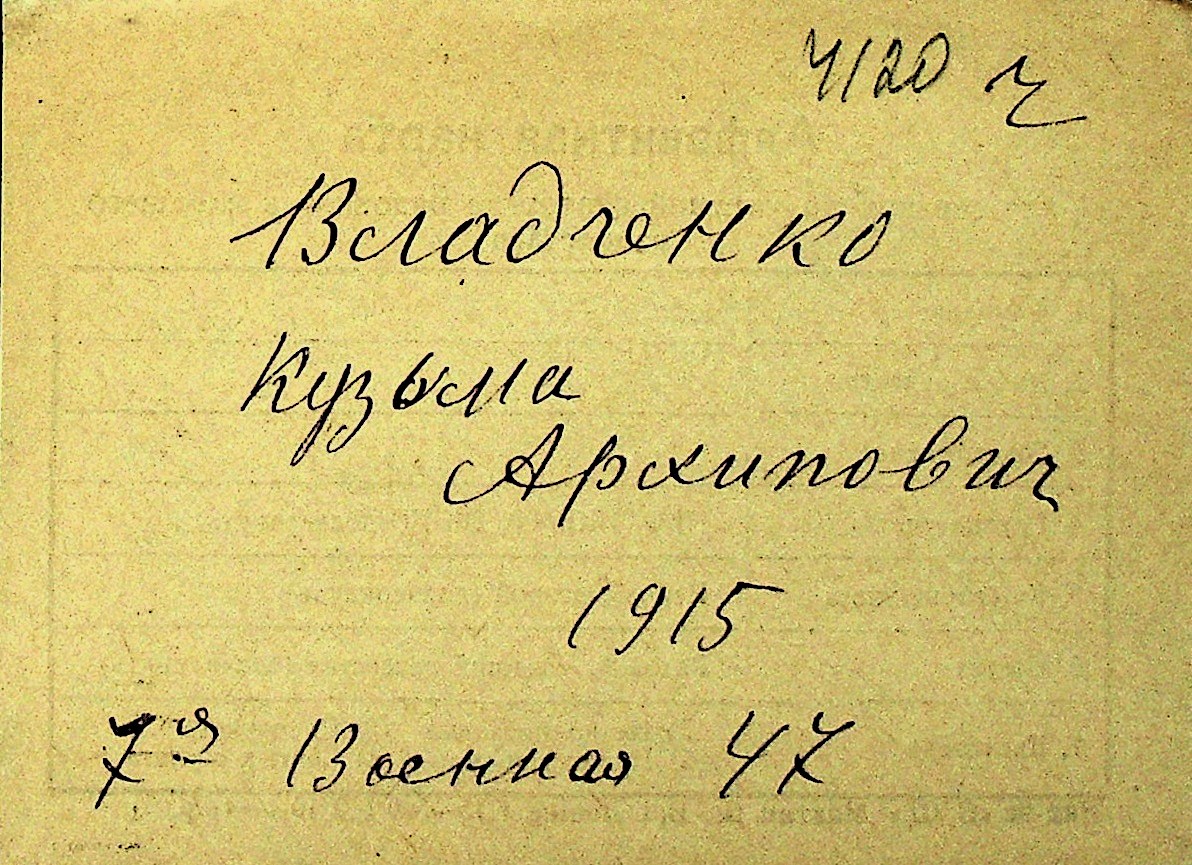 4120 ч
Владченко
Кузьма
Архипович
1915
7я Военная 47